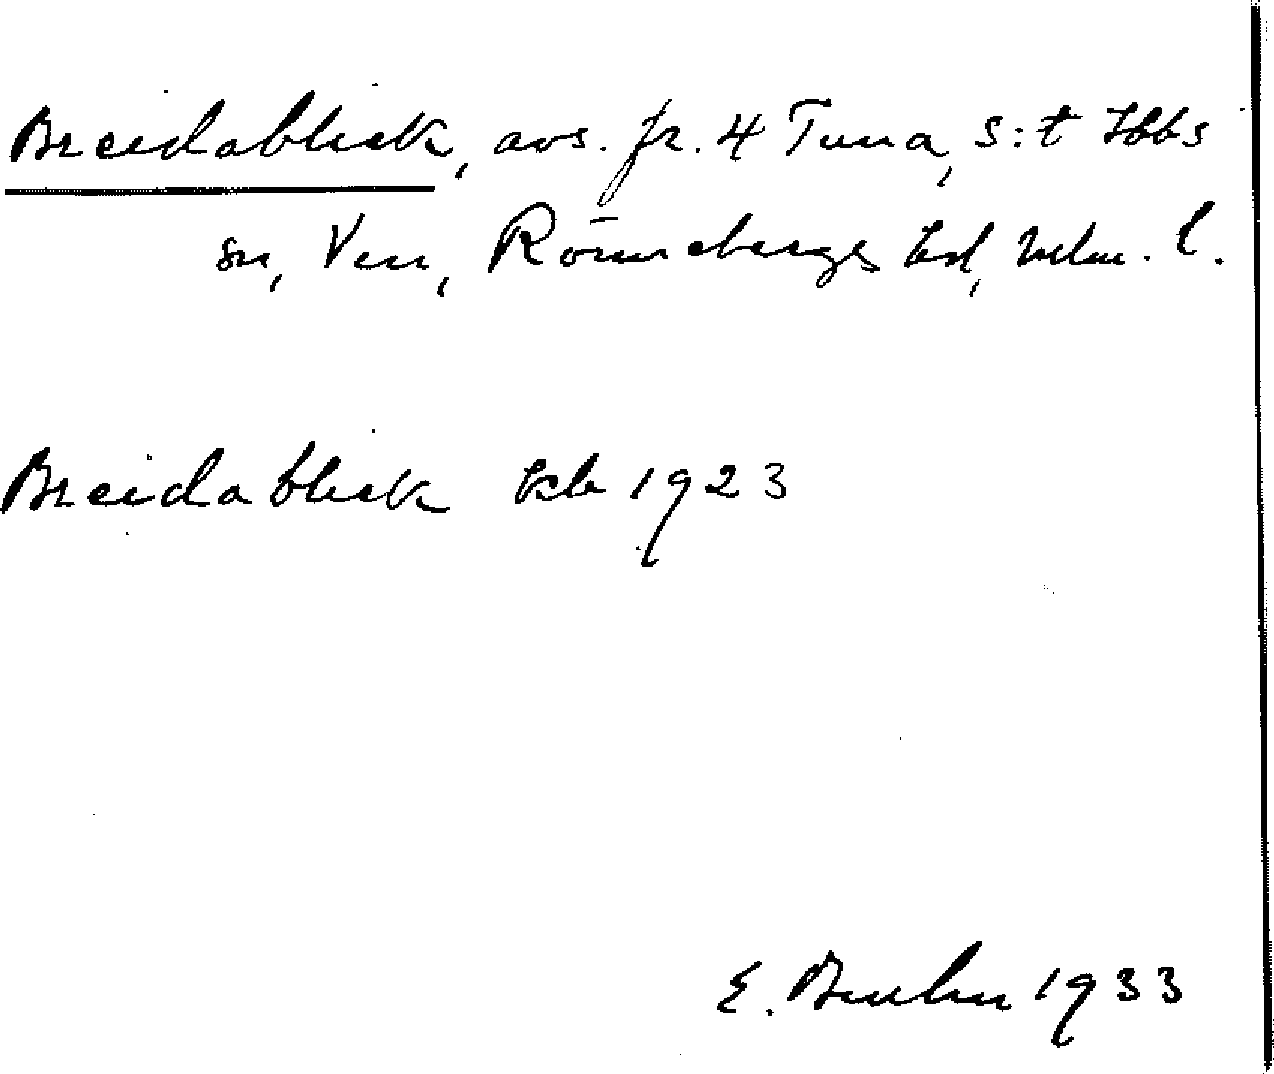 Breidablick, avs. fr. 4 Tuna, S:t Ibbs
sn, Ven, Rönnebergs hd, Mlm. l.
Breidablick kb 1923
E. 1933